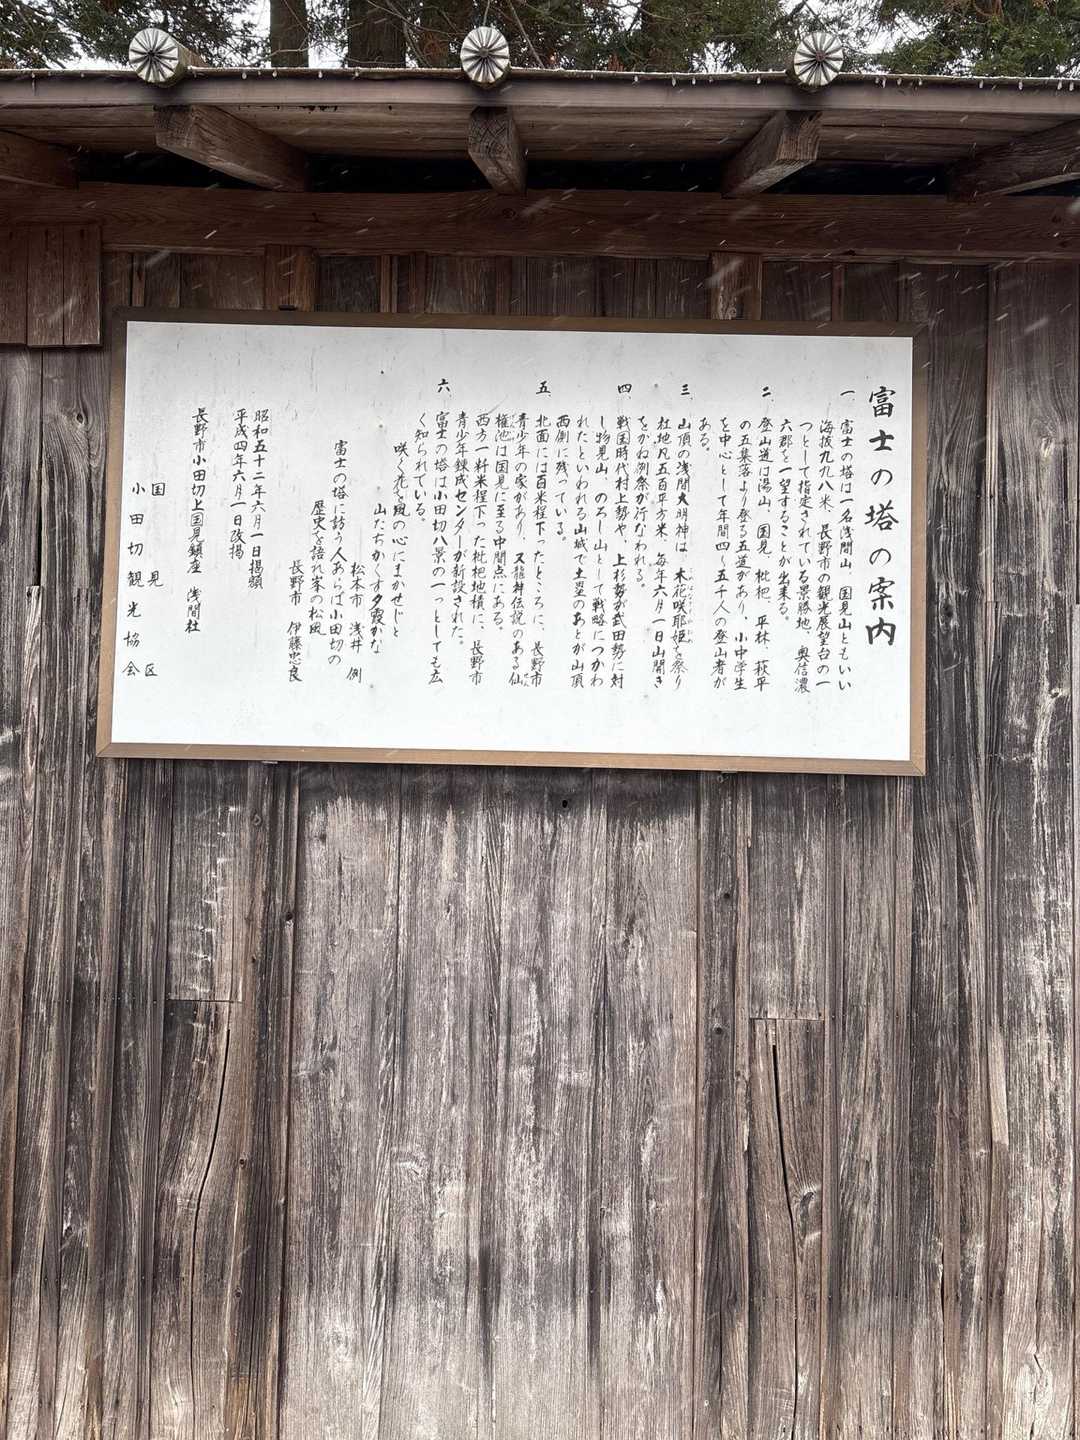 富士の塔の案内
一 富士の塔は一名浅間山、国見山ともいい
海抜九九八米、長野市の観光展望台の一
つとして指定されている景勝地、奥信濃
六郡を一望することが出来る。
二 登山道は湯山、国見、枇杷、平林、萩平
の五集落より登る五道があり、小中学生
を中心として年間四〜五千人の登山者が
ある。
三 山頂の浅間大明神は、木花咲耶姫を祭り
社地凡五百平方米、毎年六月一日山開き
をかね例祭が行なわれる。
四 戦国時代村上勢や、上杉勢が武田勢に対
し物見山、のろし山として戦略につかわ
れたといわれる山城で土塁のあとが山頂
西側に残っている。
五 北面には百米程下ったところに、長野市
青少年の家があり、又龍神伝説のある仙
権池は国見に至る中間点にある。
西方一粁米程下った枇杷地積に、長野市
青少年錬成センターが新設された。
六 富士の塔は小田切八景の一つとしても広
く知られている。
咲く花を風の心にまかせじと
山たちかくす夕霞かな
松本市 浅井 例
富士の塔に訪う人あらば小田切の
歴史を語れ峯の松風
長野市 伊藤忠良
昭和五十二年六月一日掲額
平成四年六月一日改掲
長野市小田切上国見鎮座 浅間社
国見区
小田切観光協会